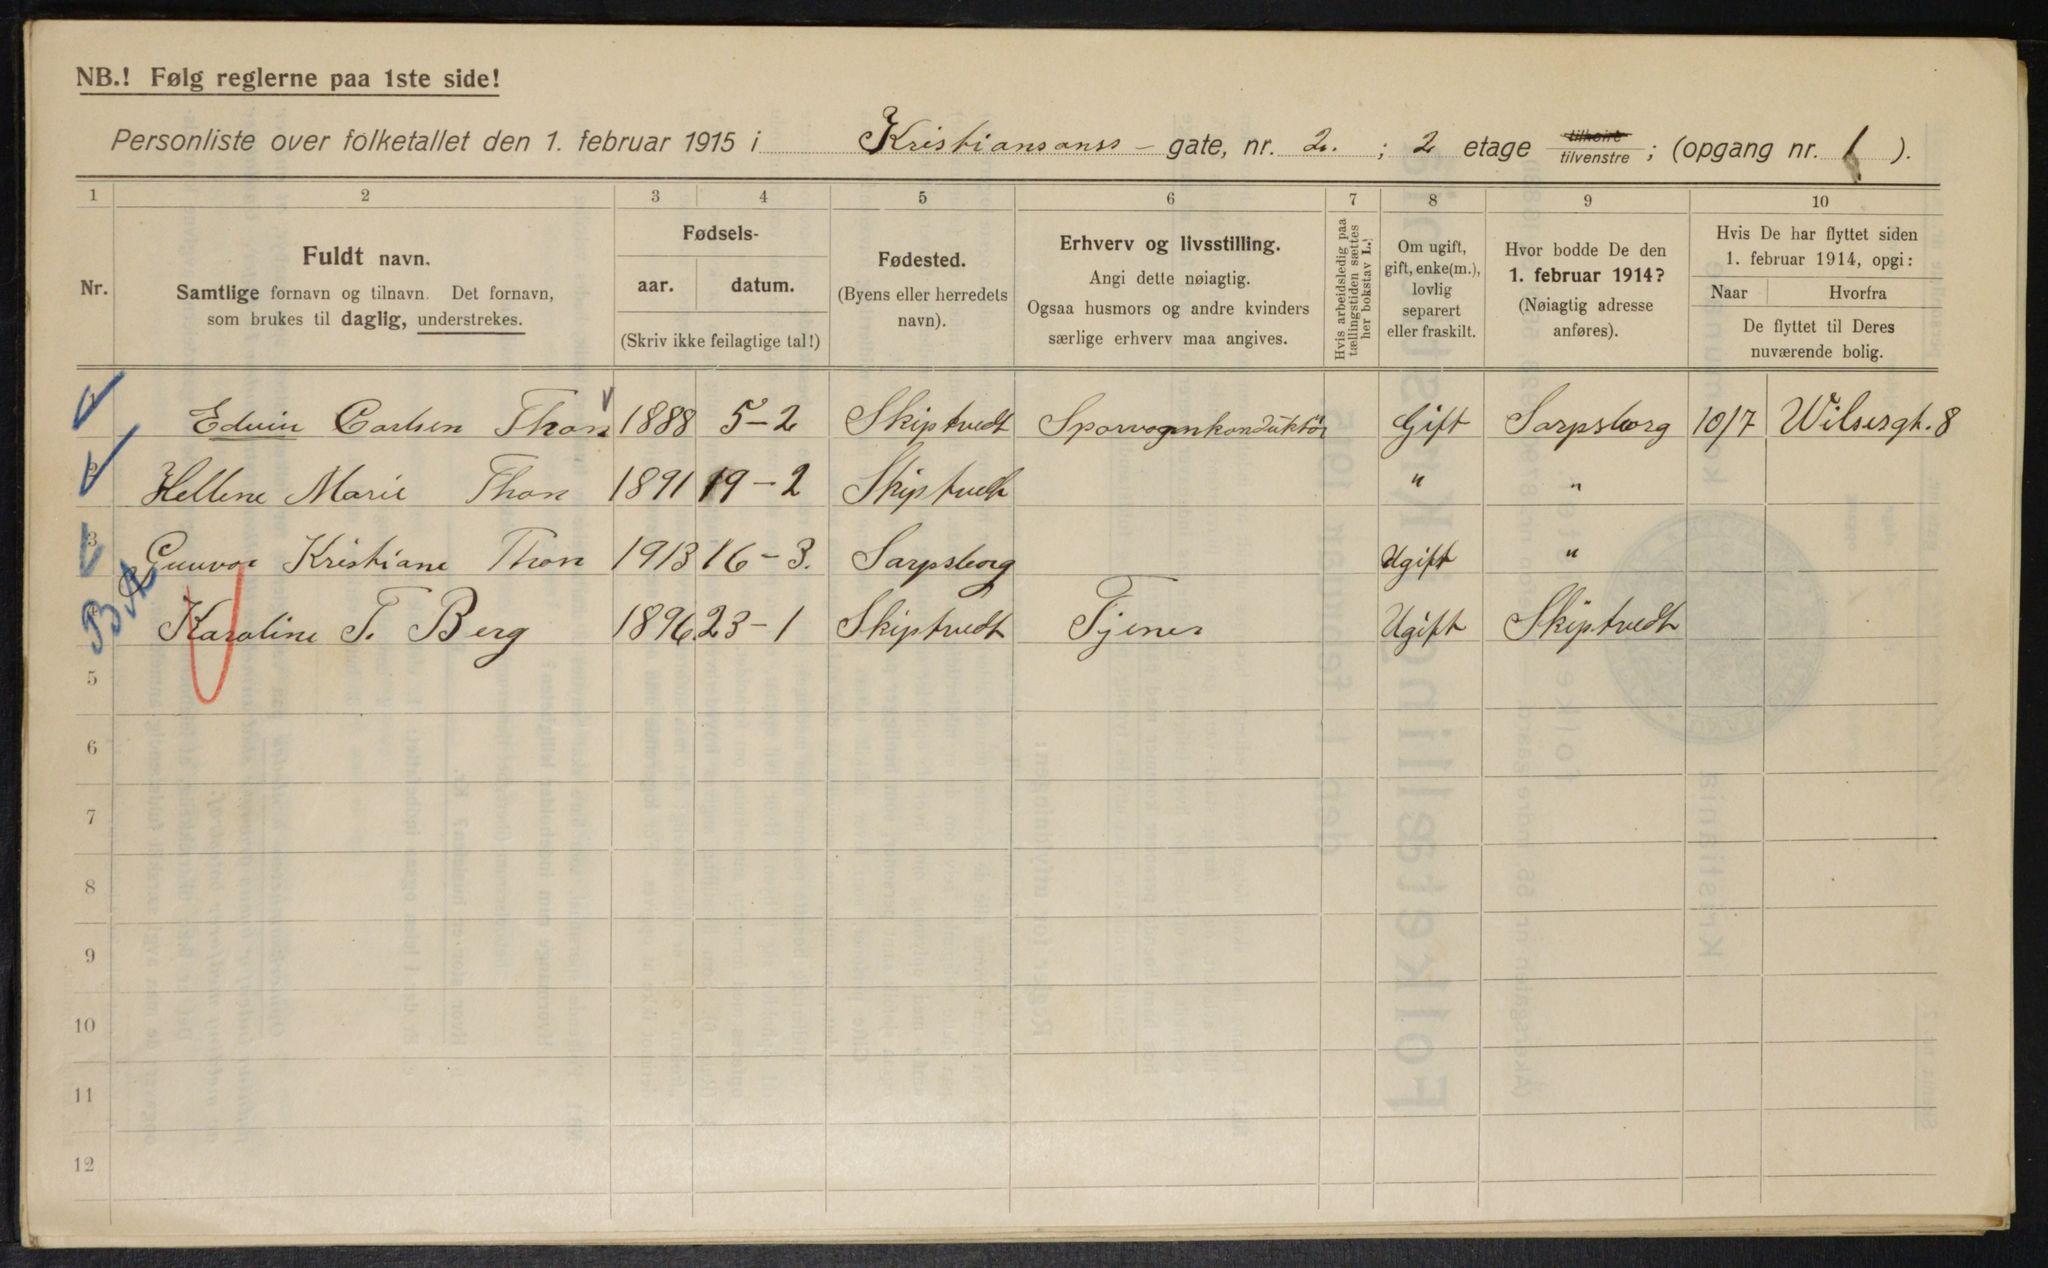 NB.! Følg reglerne paa 1ste side!
Personliste over folketallet den 1. februar 1915 i Kristiansanss- gate, nr. 2. ; 2 etage tilhoire tilvenstre ; (opgang nr. 1 ).
1 2 3 4 5 6 7 8 9 10
Nr.
Fuldt navn.
Samtlige fornavn og tilnavn. Det fornavn,
som brukes til daglig, understrekes.
Fødsels-
aar. datum.
(Skriv ikke feilagtige tal!)
Fødested.
(Byens eller herredets
navn).
Erhverv og livsstilling.
Angi dette nøiagtig.
Ogsaa husmors og andre kvinders
særlige erhverv maa angives.
Hvis arbeidsledig paa
tællingstiden sættes
her bokstav L.!
Om ugift,
gift, enke(m.),
lovlig
separert
eller fraskilt.
Hvor bodde De den
1. februar 1914?
(Nøiagtig adresse
anføres).
Hvis De har flyttet siden
1. februar 1914, opgi:
Naar Hvorfra
De flyttet til Deres
nuværende bolig.
Edvin Carlsen Thon 1888 5-2 Skiptvedt Sporvognkonduktør Gift Sarpsborg 10/7 Wilsesgt. 8
2 Hellene Marie Thon 1891 19-2 Skiptvedt " "
3 Gunvor Kristiane Thon 1913 16-3. Sarpsborg Ugift "
4 Karoline T. Berg 1896 23-1 Skiptvedt Tjener Ugift Skiptvedt
5
6
7
8
9
10
11
12